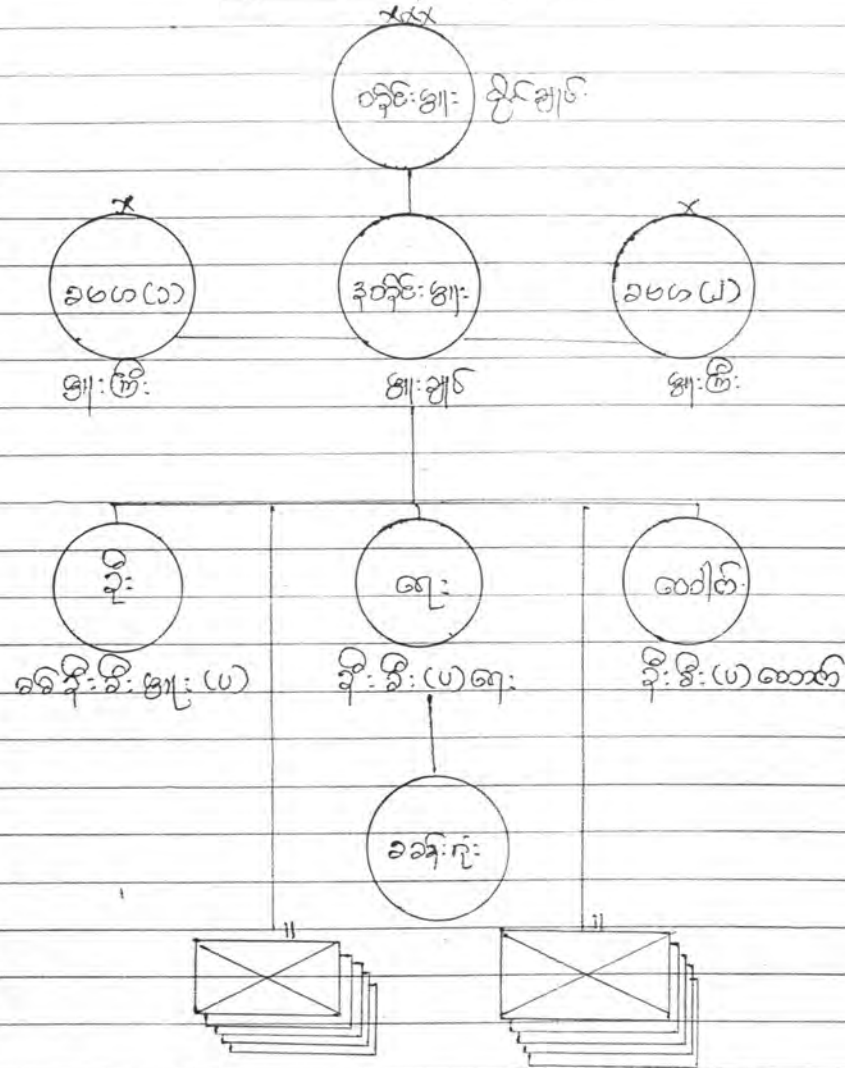 xxx
တိုင်းမှူး ဗိုလ်ချုပ်
x x
ခမဟ(၁) ဒုတိုင်းမှူး ခမဟ(၂)
မှူးကြီး မှူးချုပ် မှူးကြီး
ဦး ရေး ထောက်
စစ်ဦးစီးမှူး(ပ) ဦးစီး(ပ)ရေး ဦးစီး(ပ)ထောက်
ခခန်းကုံး
II II